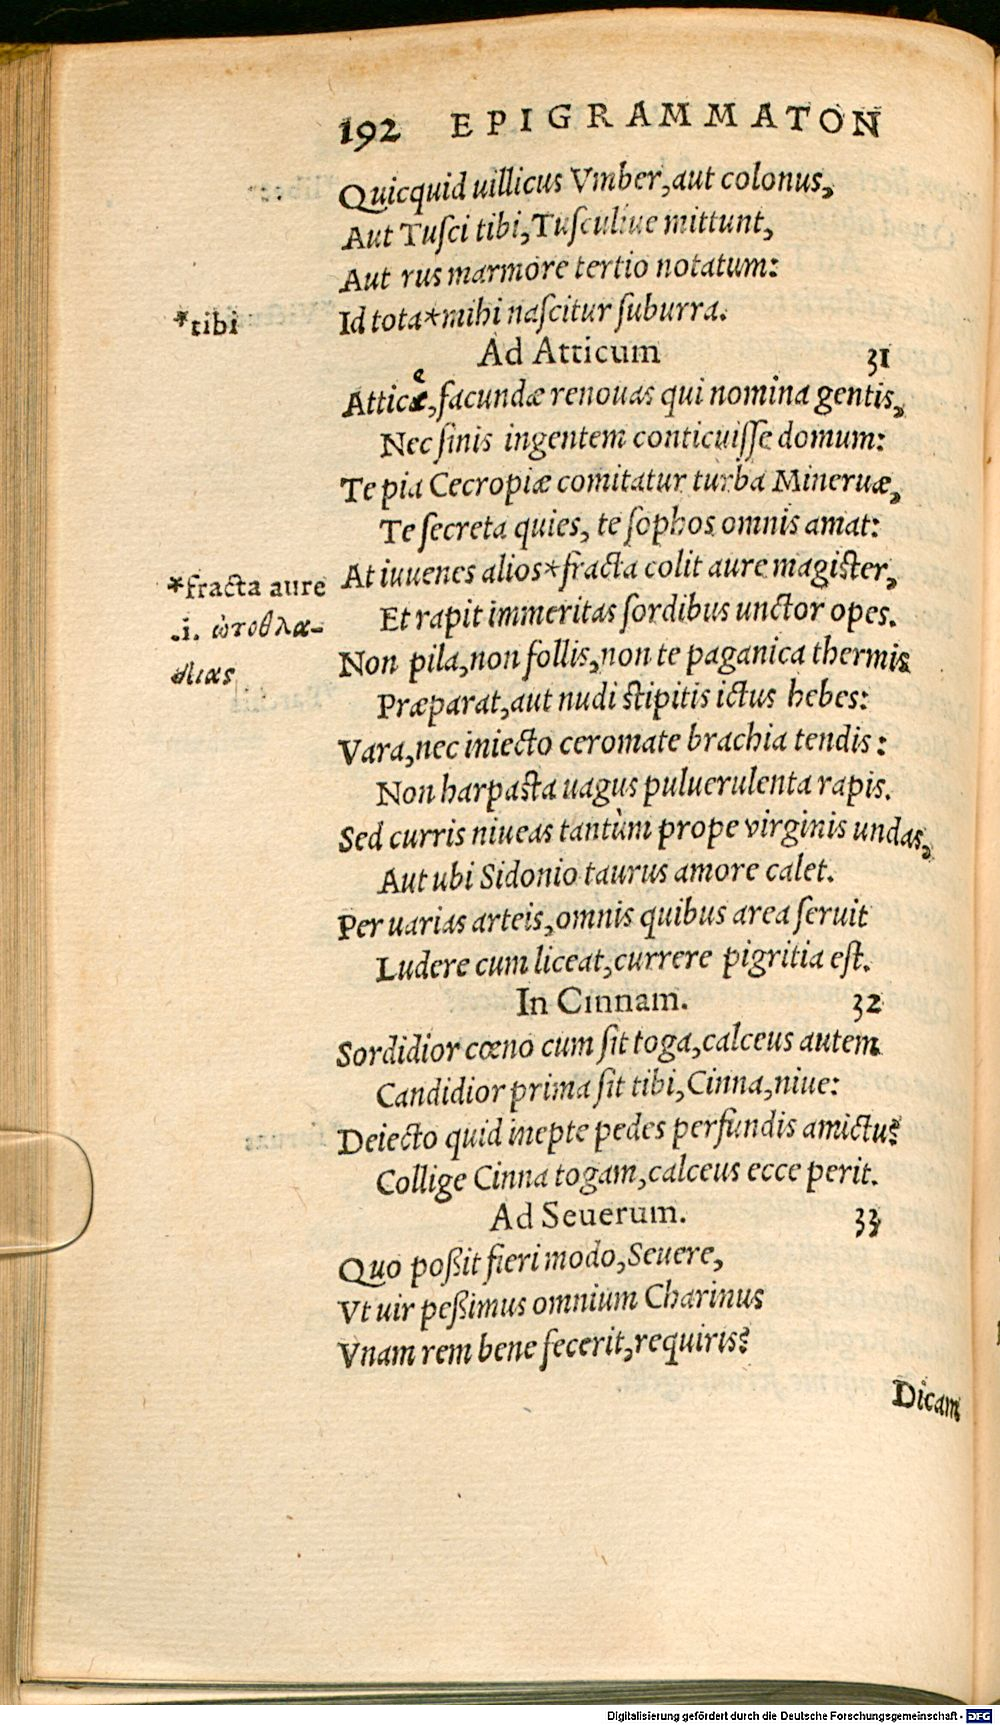 192 EPIGRAMMATON
Quicquid uillicus Vmber, aut colonus,
Aut Tusci tibi, Tusculiue mittunt,
Aut rus marmore tertio notatum:
*tibi
Id tota*mihi nascitur suburra.
Ad Atticum 31
Attice, facundæ renouas qui nomina gentis,
Nec sinis ingentem conticuisse domum:
Te pia Cecropiæ comitatur turba Mineruæ,
Te secreta quies, te sophos omnis amat:
At iuuenes alios*fracta colit aure magister,
*fracta aure
.i. ὠτοθλα-
δίας
Et rapit immeritas sordibus unctor opes.
Non pila, non follis, non te paganica thermis
Præparat, aut nudi stipitis ictus hebes:
Vara, nec iniecto ceromate brachia tendis:
Non harpasta uagus puluerulenta rapis.
Sed curris niueas tantùm prope virginis undas,
Aut ubi Sidonio taurus amore calet.
Per uarias arteis, omnis quibus area seruit
Ludere cum liceat, currere pigritia est.
In Cinnam. 32
Sordidior cœno cum sit toga, calceus autem
Candidior prima sit tibi, Cinna, niue:
Deiecto quid inepte pedes perfundis amictu?
Collige Cinna togam, calceus ecce perit.
Ad Seuerum. 33
Quo poßit fieri modo, Seuere,
Vt uir peßimus omnium Charinus
Vnam rem bene fecerit, requiris?
Dicam
Digitalisierung gefördert durch die Deutsche Forschungsgemeinschaft - DFG